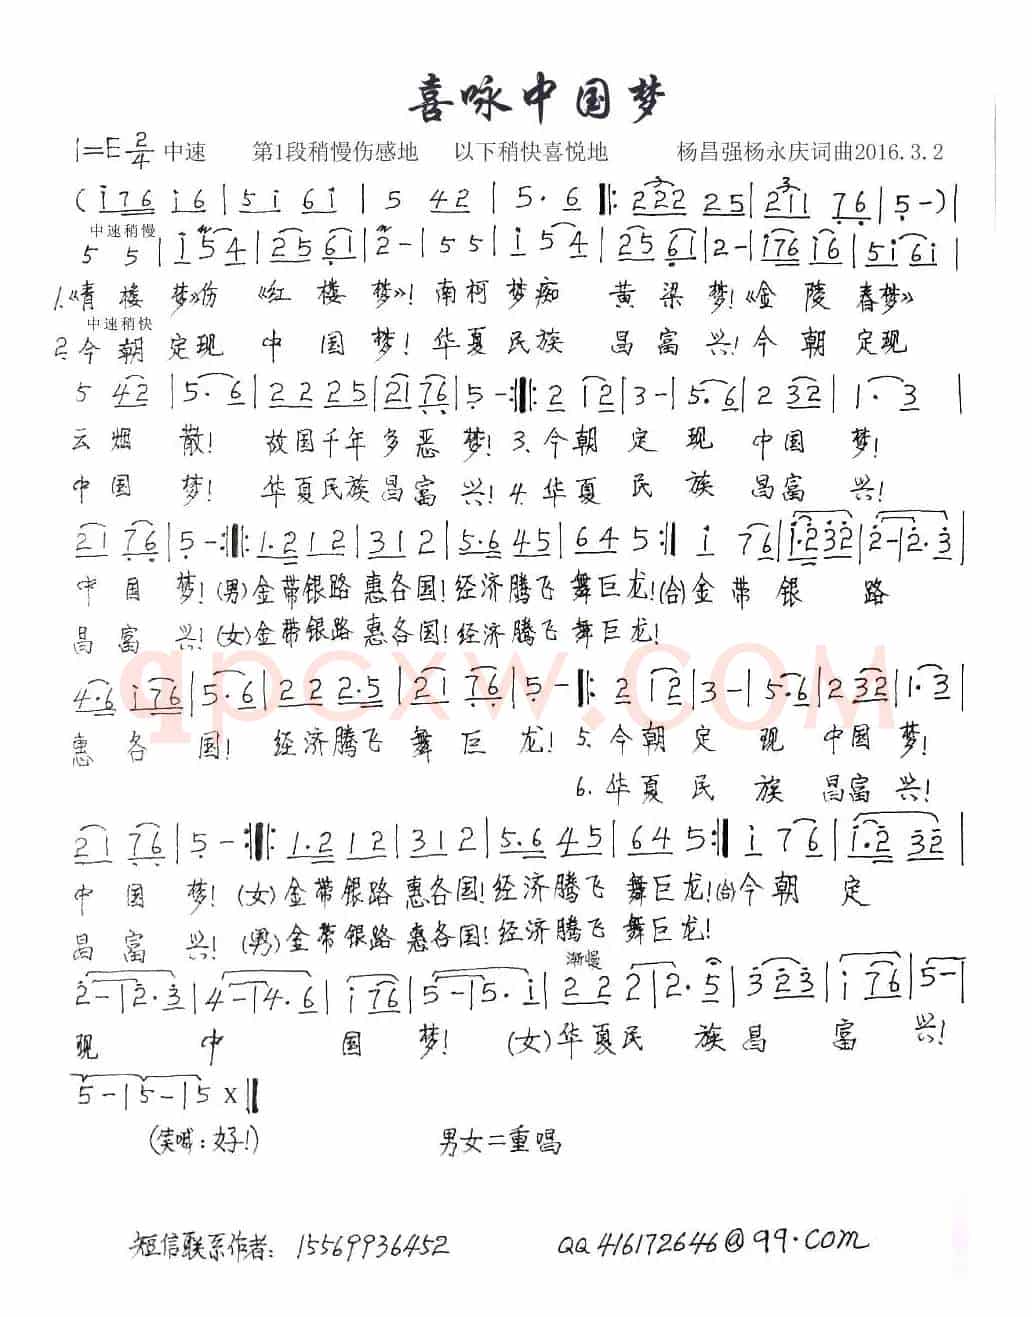 喜咏中国梦
1=E 2/4 中速 第1段稍慢伤感地 以下稍快喜悦地 杨昌强杨永庆词曲2016.3.2
(i76 i6|5i 6i|5 42|5·6‖:222 25|2i1 76|5-)|
中速稍慢
5 5|i 54|25 61|2-|5 55|i 54|25 61|2-|i76 i6|5i 6i|
1.《青楼梦》伤《红楼梦》!南柯梦痴 黄梁梦!《金陵春梦》
中速稍快
2.今朝定现 中国梦!华夏民族 昌富兴!今朝定现
5 42|5·6|22 25|21 76|5-:‖:2 12|3-|5·6|2 32|1·3|
云烟散! 故国千年多恶梦!3.今朝定现中国梦!
中国梦! 华夏民族昌富兴!4.华夏民族昌富兴!
21 76|5-:‖:1·2 12|31 2|5·6 45|64 5:‖i 76|1·2 32|2-|2·3|
中国梦!(男)金带银路惠各国!经济腾飞舞巨龙!(合)金带银路
昌富兴!(女)金带银路惠各国!经济腾飞舞巨龙!
qpcxw.COM
4·6 i76|5·6|22 2·5|21 76|5-‖:2 12|3-|5·6|2 32|1·3|
惠各国! 经济腾飞舞巨龙!5.今朝定现中国梦!
6.华夏民族昌富兴!
21 76|5-:‖:1·2 12|31 2|5·6 45|64 5:‖i 76|1·2 32|
中国梦!(女)金带银路惠各国!经济腾飞舞巨龙!(合)今朝定
昌富兴!(男)金带银路惠各国!经济腾飞舞巨龙!
渐慢
2-|2·3|4-|4·6|i 76|5-|5·i|22 2|2·5|3 23|i 76|5-|
现中国梦!(女)华夏民族昌富兴!
5-|5-|5 X‖
(笑喊:好!) 男女二重唱
短信联系作者:15569936452 QQ416172646@99.com